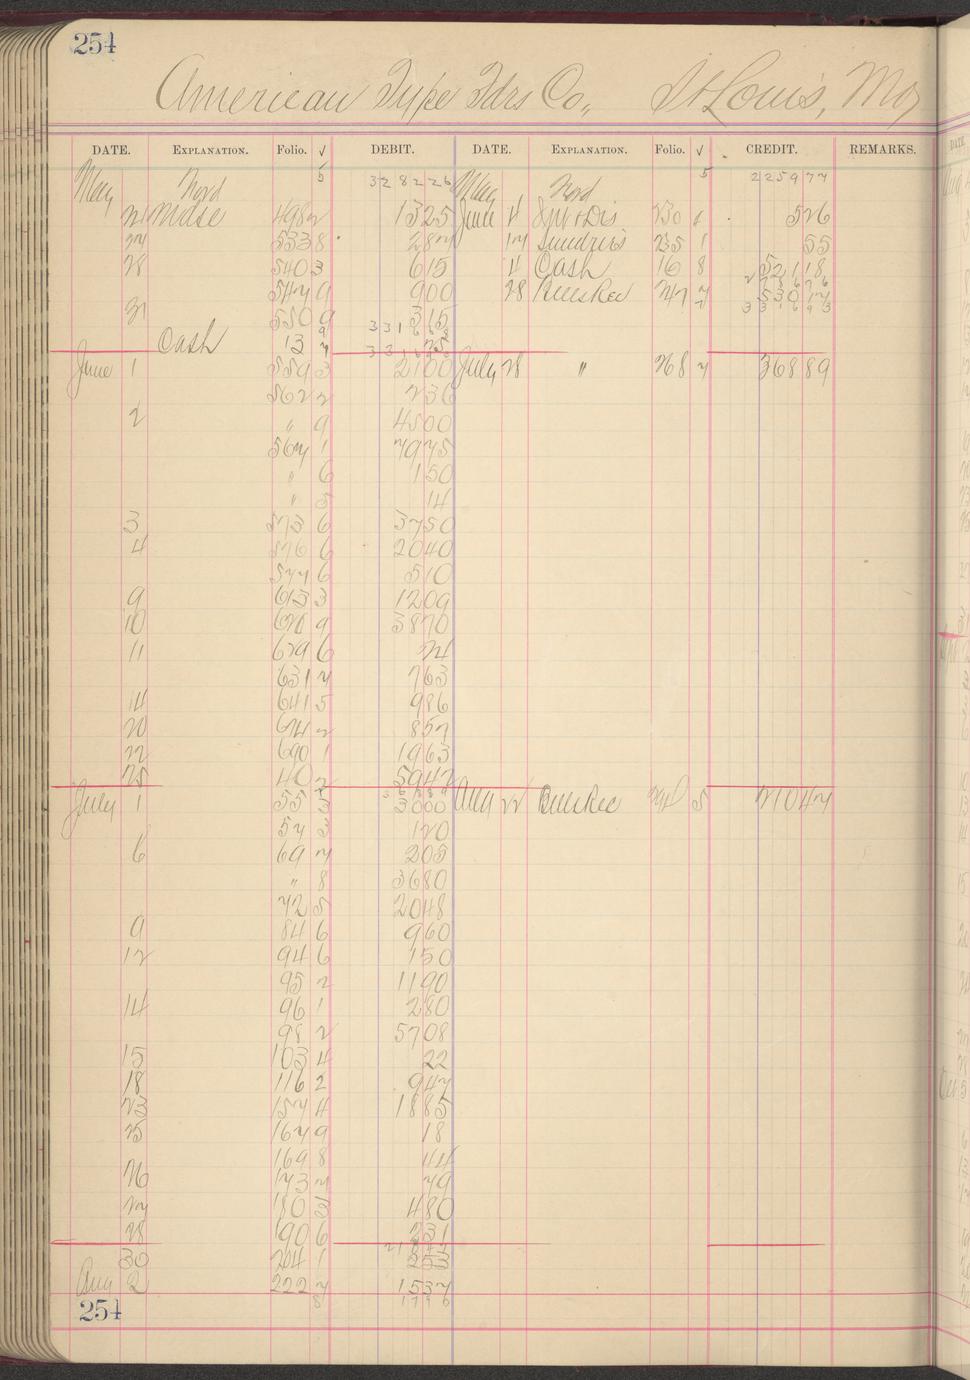 254
American Type Fdrs Co., St Louis, Mo
DATE. EXPLANATION. Folio. √ DEBIT. DATE. EXPLANATION. Folio. √ CREDIT. REMARKS.
May Ford 5 328226 May Ford 5 225977
21 Mdse 498 2 1325 June 4 Int & Dis 230 526
27 533 8 287 17 Sundries 235 1 55
28 540 3 615 4 Cash 16 8 52118
547 9 900 28 Bills Rec 247 7 53017
31 550 9 315
Cash 13 7 75
June 1 559 3 2100 July 28 " 268 7 36889
562 2 236
2 " 9 4500
567 1 7975
" 6 150
" 5 14
3 573 6 3750
4 576 6 2040
577 6 510
9 613 3 1209
10 628 9 3870
11 629 6 24
631 7 263
14 641 5 986
20 674 2 857
22 690 1 1963
25 40 2 5942
July 1 55 3 3000 Aug 22 Bills Rec 5 21047
57 3 120
6 69 7 205
" 8 3680
72 5 2048
9 84 6 960
12 94 6 150
95 2 1190
14 96 1 280
98 2 5708
15 103 4 22
18 116 2 947
23 157 4 1885
25 167 9 18
169 8 44
26 173 7 79
27 180 3 480
28 190 6 231
30 204 1 253
Aug 2 222 7 1537
8 1796
254